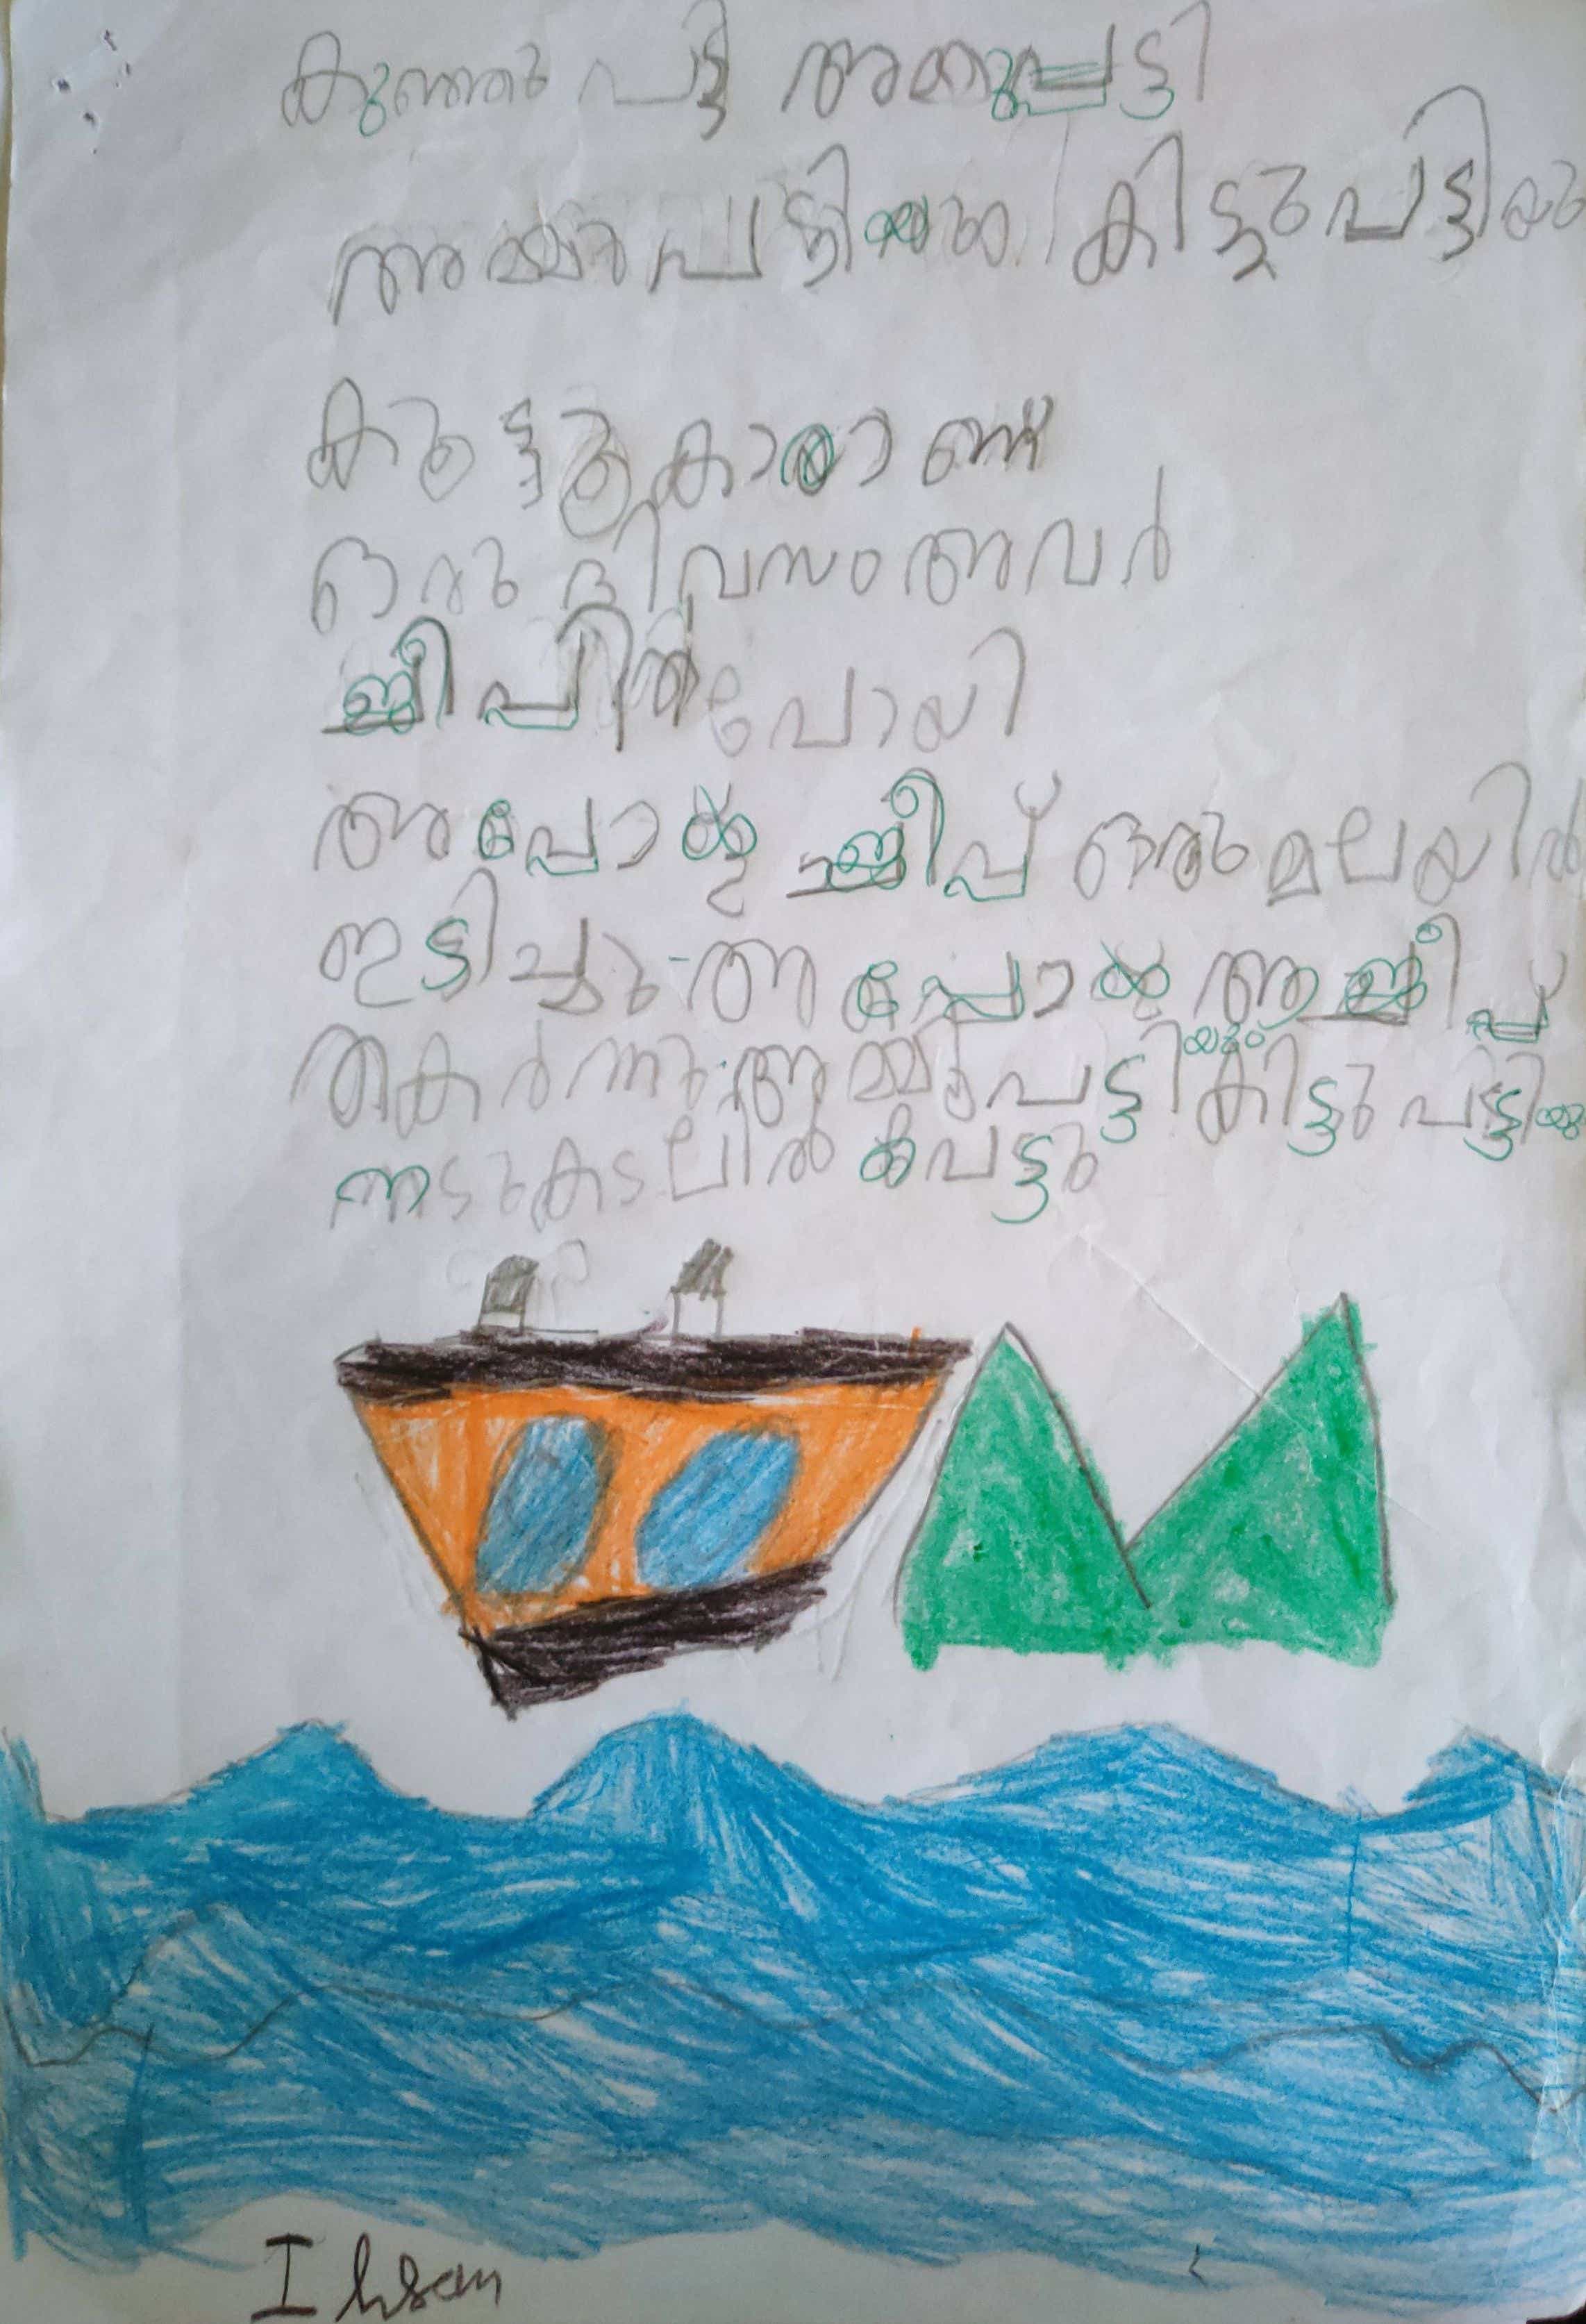 കുഞ്ഞു പട്ടി അമ്മുപട്ടി
അമ്മുപട്ടിയും കിട്ടുപട്ടിയു
കുട്ടുകാരാണ്
ഒരു ദിവസം അവർ
ഷിപ്പിൽ പോയി
അപ്പോൾ ഷിപ്പ് ഒരു മലയിൽ
ഇടിച്ചു അപ്പോൾ ആ ഷിപ്പ്
തകർന്നു. അമ്മുപട്ടിയും കിട്ടു പട്ടിയു
നടുകടലിൽ പെട്ടു
Ihsan